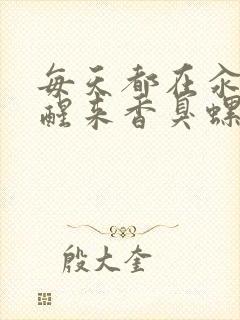 每天都在汆
醒来香臭螺
殷大奎